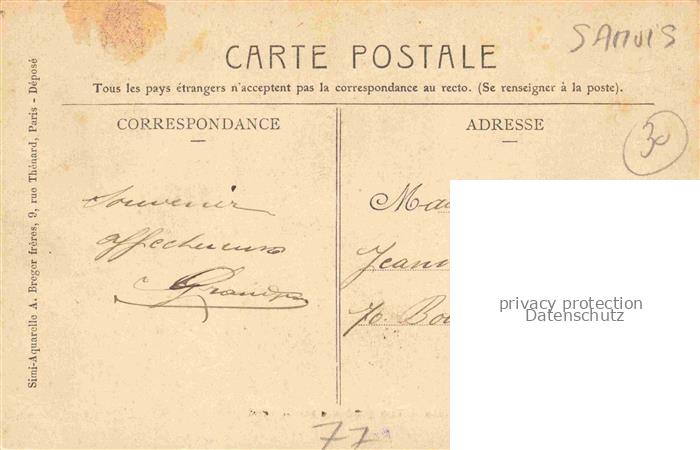 SAMOIS
CARTE POSTALE
Tous les pays étrangers n'acceptent pas la correspondance au recto. (Se renseigner à la poste).
CORRESPONDANCE
ADRESSE
30
Souvenir
affectueux
Simi-Aquarelle A. Breger frères, 9, rue Thénard, Paris - Déposé
privacy protection
Datenschutz
77